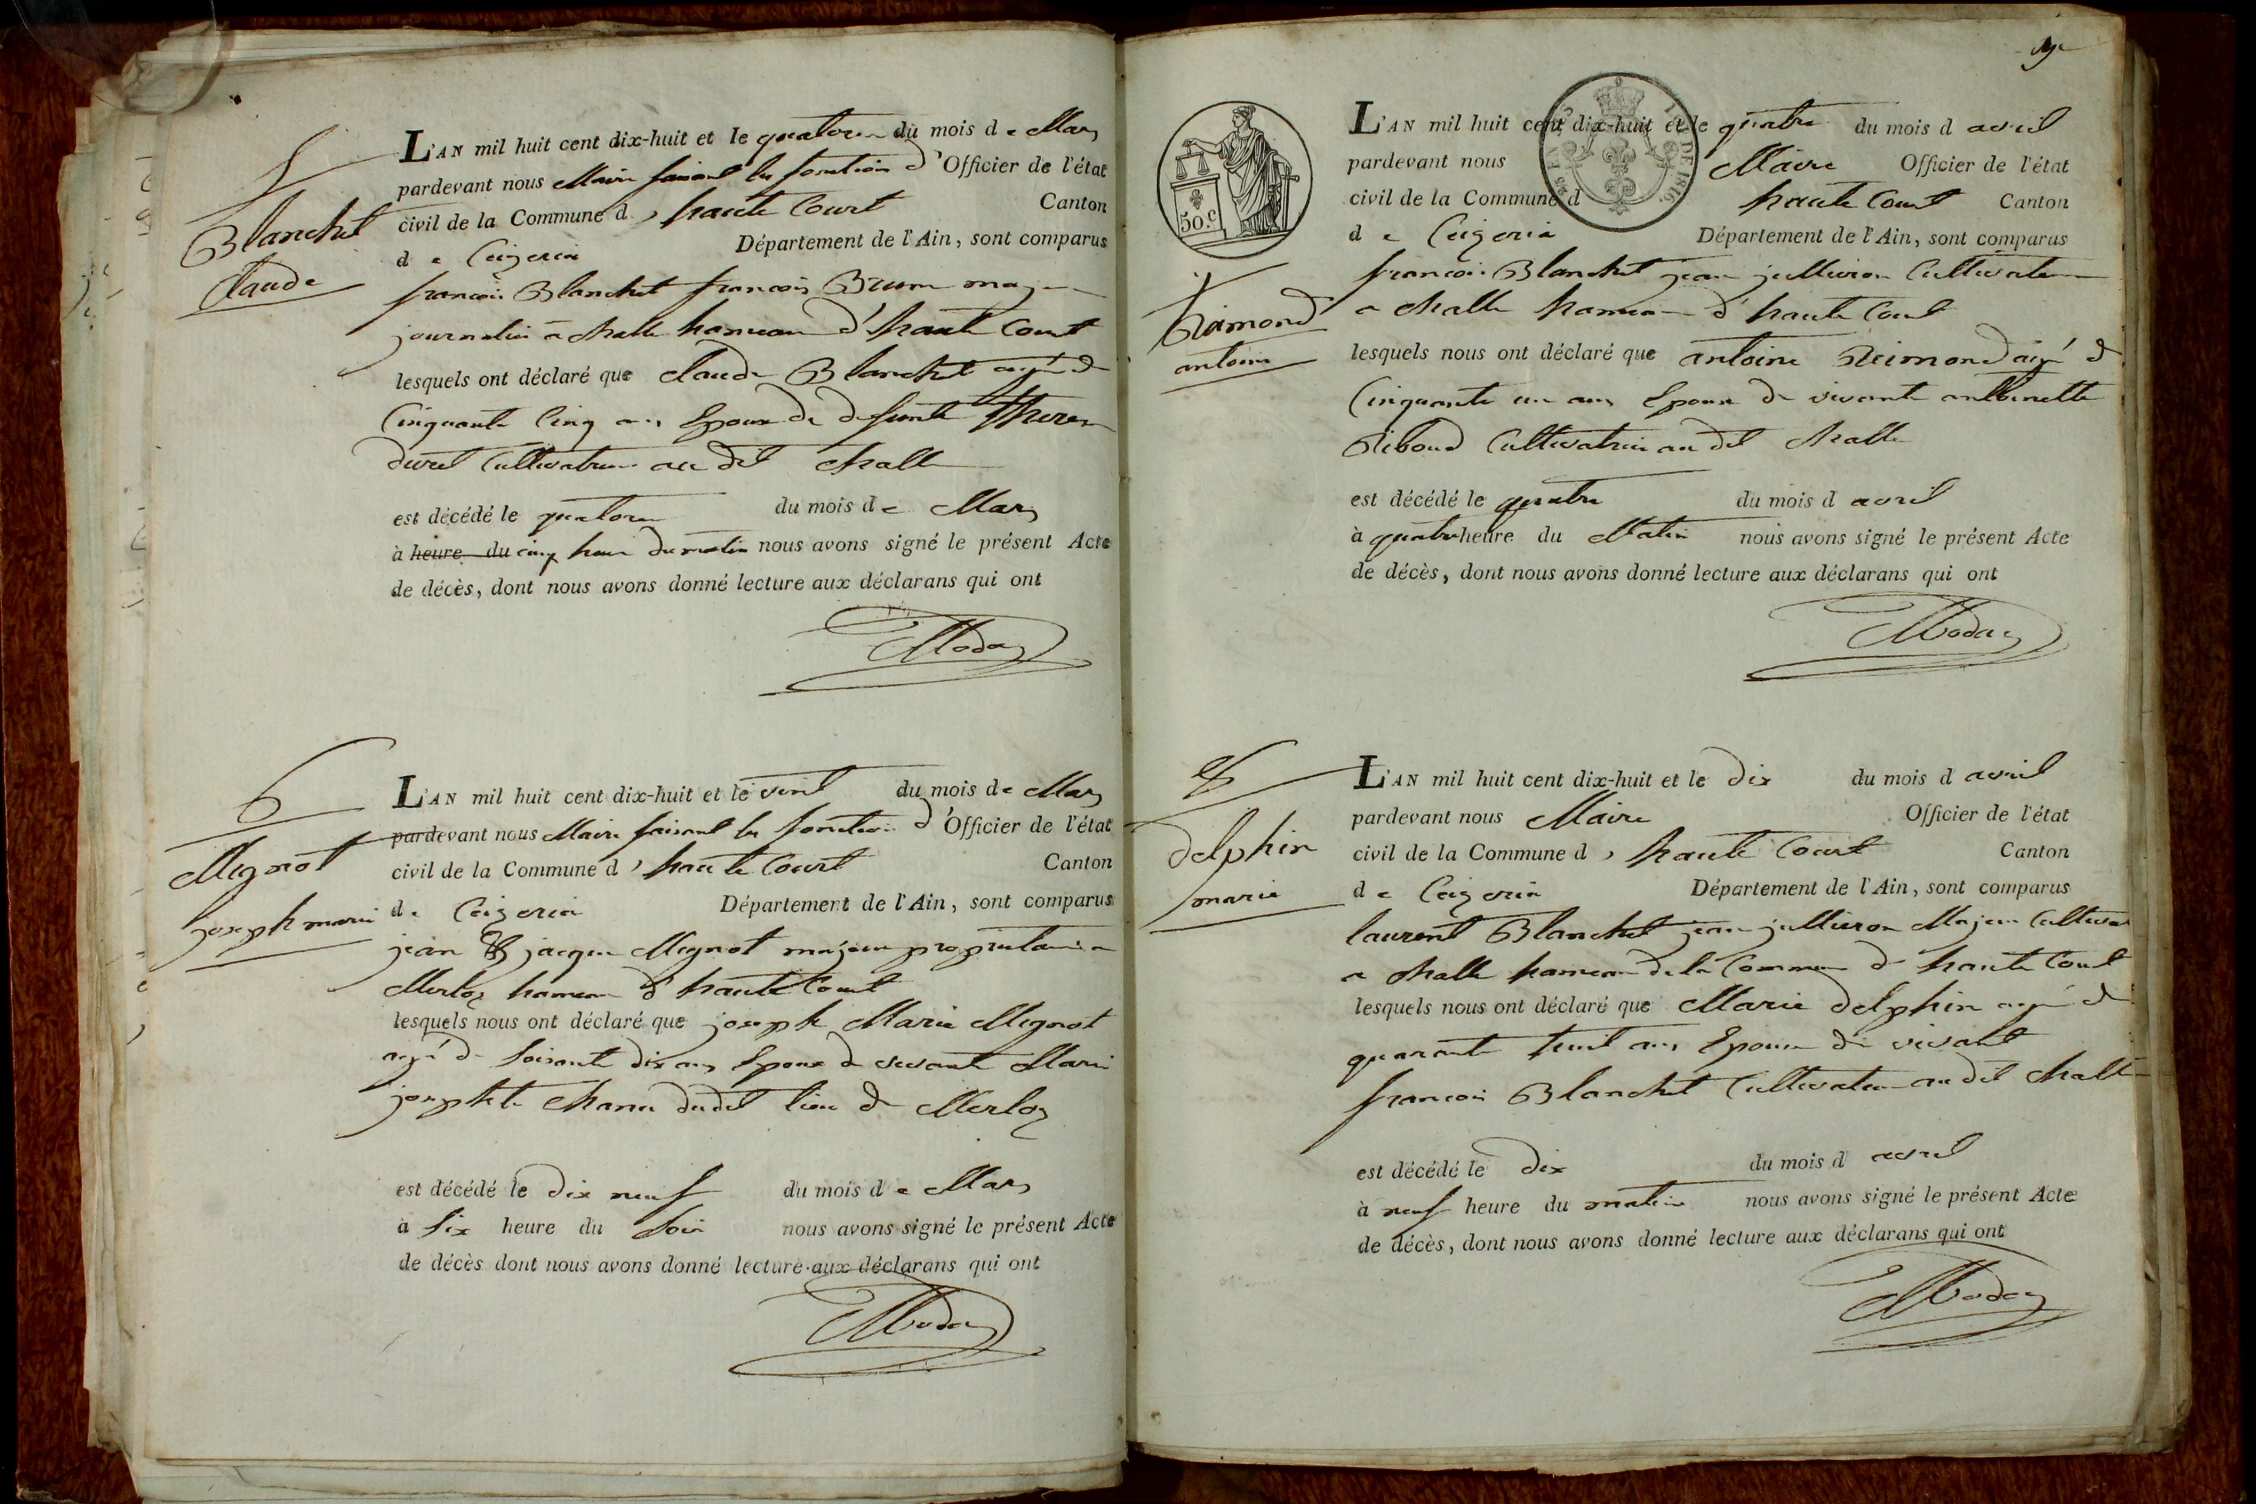 5
Blanchet
Claude
L'AN mil huit cent dix-huit et le quatorze du mois de Mars
pardevant nous Maire faisant les fonctions d'Officier de l'état
civil de la Commune d'hautecourt Canton
de Ceizeria Département de l'Ain, sont comparus
francois Blanchet francois Brun
journalier a challe hameau d'haute Court
lesquels ont déclaré que claude Blanchet agé de
Cinquante Cinq ans Epoux de defunte
Cultivateur au dit challe
est décédé le quatorze du mois de Mars
à heure du cinq heure du matin nous avons signé le présent Acte
de décès, dont nous avons donné lecture aux déclarans qui ont
6
Mignot
joseph marie
L'AN mil huit cent dix-huit et le vint du mois de Mars
pardevant nous Maire faisant les fonctions d'Officier de l'état
civil de la Commune d'haute Court Canton
de Ceizeria Département de l'Ain, sont comparus
jean & jacque Mignot majeur proprietaire a
Merloz hameau d'haute Court
lesquels nous ont déclaré que joseph Marie Mignot
agé de soisante dix ans Epoux de vivante Marie
josephte dudit lieu de Merloz
est décédé le dix neuf du mois de Mars
à six heure du soir nous avons signé le présent Acte
de décès dont nous avons donné lecture aux déclarans qui ont
50.c
DE 1816.
7
Reimond
antoine
L'AN mil huit cent dix-huit et le quatre du mois d avril
pardevant nous Maire Officier de l'état
civil de la Commune d haute Court Canton
de Ceizeria Département de l'Ain, sont comparus
francois Blanchet jean jullieron Cultivateur
a challe hameau d'haute Court
lesquels nous ont déclaré que antoine Reimond agé de
Cinquante un ans Epoux de vivante antoinette
Riboud Cultivatrice au dit challe
est décédé le quatre du mois d avril
à quatre heure du Matin nous avons signé le présent Acte
de décès, dont nous avons donné lecture aux déclarans qui ont
8
delphin
marie
L'AN mil huit cent dix-huit et le dix du mois d avril
pardevant nous Maire Officier de l'état
civil de la Commune d'haute Court Canton
de Ceizeria Département de l'Ain, sont comparus
laurent Blanchet jean jullieron Majeur Cultivat
a challe hameau de la Commune d'haute Court
lesquels nous ont déclaré que Marie delphin agé de
quarante huit ans Epouse de vivant
francois Blanchet Cultivateur au dit challe
est décédé le dix du mois d avril
à neuf heure du matin nous avons signé le présent Acte
de décès, dont nous avons donné lecture aux déclarans qui ont